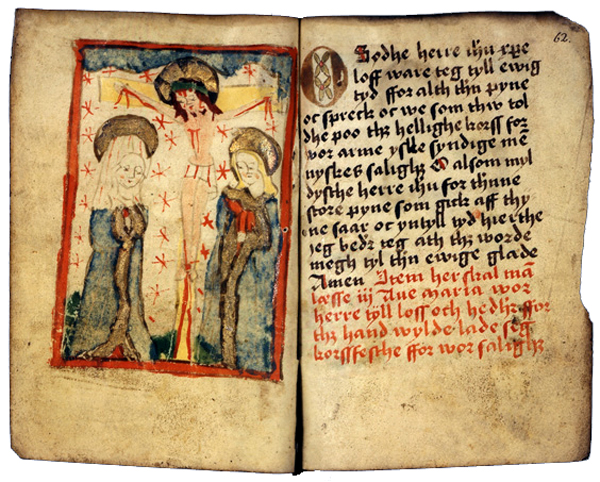 62.
O Godhe herre ihu xpe
loff ware teg tyll ewig
tyd ffor alth thn pyne
oc spreck oc we som thw tol
dhe poo thz hellighe korss for
wor arme yske syndige mē
nyskes salighz Oc alsom myl
dysche herre ihu for thnne
store pyne som gick aff thy
ne saar oc yntyll tyd hierthe
ieg beder teg ath thz worde
megh tyl thn ewige glade
Amen Item her skal mā
læsse iij Aue maria wor
herre tyll loff och hedhr ffor
thz hand wylde lade seg
korssfesthe ffor wor salighz